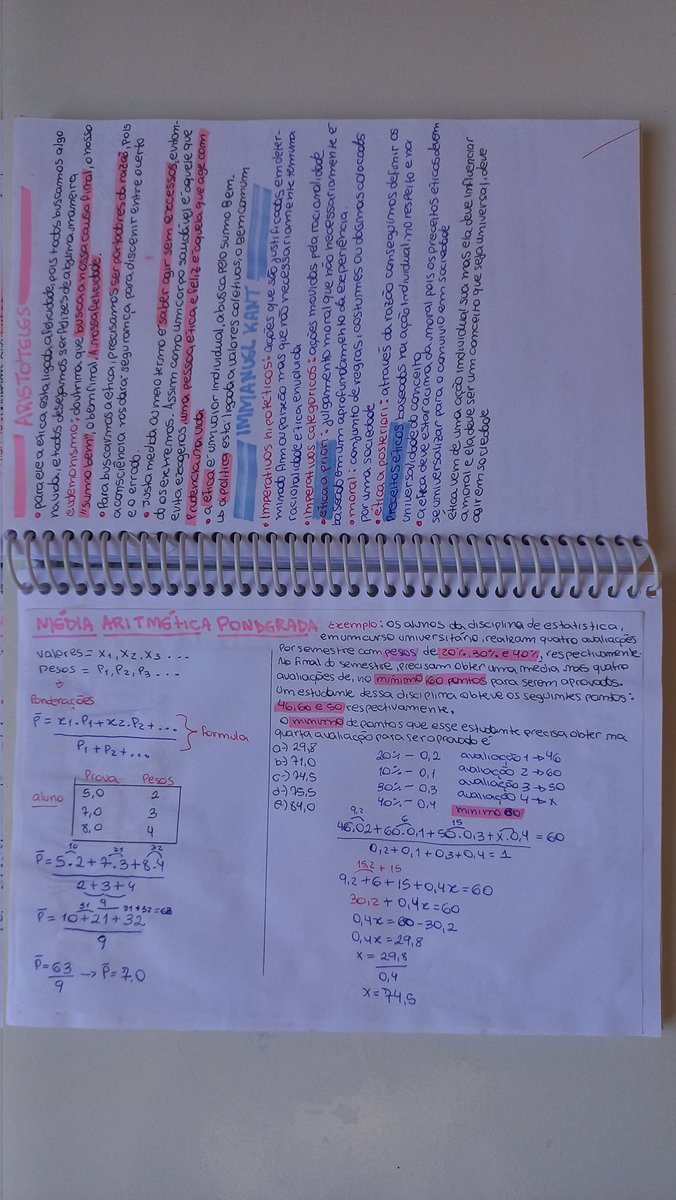 ARISTÓTELES
• para ele a ética está ligada a felicidade, pois todos buscamos algo
na vida, e todos desejamos ser felizes de alguma maneira
eudemonismo: doutrina que busca a nossa causa final, o nosso
"sumo bem", o bem final. A nossa felicidade.
• Para buscarmos a ética, precisamos ser portadores da razão, pois
a consciência nos dará segurança para discernir entre o certo
e o errado.
• Justa medida ou meio termo e saber agir sem excessos, evitan-
do os extremos. Assim como um corpo saudável é aquele que
evita exageros, uma pessoa ética e feliz é aquela que age com
Prudência na vida
• a ética é um valor individual, a busca pelo sumo Bem.
a política está ligada a valores coletivos, o bem comum
IMMANUEL KANT
• Imperativos hipotéticos: ações que são justificadas em deter-
minado fim ou razão mas que não necessariamente tem uma
racionalidade ética envolvida
• Imperativos categóricos: ações movidas pela racionalidade
• ética a priori: julgamento moral que não necessariamente é
baseado em um aprofundamento da experiência.
• moral: conjunto de regras, costumes ou dogmas colocados
por uma sociedade
• ética a posteriori: através da razão conseguimos definir os
Preceitos éticos baseados na ação individual, no respeito e na
universalidade do conceito
• a ética deve estar acima da moral pois os preceitos éticos devem
se universalizar para o convívio em sociedade
ética vem de uma ação individual sua mas ela deve influenciar
a moral e ela deve ser um conceito que seja universal, deve
agir em sociedade
MÉDIA ARITMÉTICA PONDERADA
valores = x1, x2, x3 ...
pesos = P1, P2, P3 ...
Ponderações
P̄ = x1.P1+x2.P2+...
P1+P2+...
Formula
Prova Pesos
aluno
5,0 2
7,0 3
8,0 4
10 21 32
P̄ = 5.2+7.3+8.4
2+3+4
9
31 31+32=63
P̄ = 10+21+32
9
P̄ = 63 → P̄ = 7,0
9
Exemplo: os alunos da disciplina de estatística,
em um curso universitário, realizam quatro avaliações
Por semestre com pesos de 20%, 30% e 40%, respectivamente.
No final do semestre, precisam obter uma média nas quatro
avaliações de, no mínimo 60 pontos para serem aprovados.
Um estudante dessa disciplina obteve os seguintes pontos:
46, 60 e 50 respectivamente.
O mínimo de pontos que esse estudante precisa obter na
quarta avaliação para ser aprovado é
a) 29,8
b) 71,0
c) 74,5
d) 75,5
e) 84,0
20% - 0,2 avaliação 1 → 46
10% - 0,1 avaliação 2 → 60
30% - 0,3 avaliação 3 → 50
40% - 0,4 avaliação 4 → x
mínimo 60
9,2 6 15
46.0,2+60.0,1+50.0,3+x.0,4 = 60
0,2+0,1+0,3+0,4 = 1
15,2 + 15
9,2+6+15+0,4x=60
30,2 + 0,4x=60
0,4x=60-30,2
0,4x=29,8
x = 29,8
0,4
x=74,5